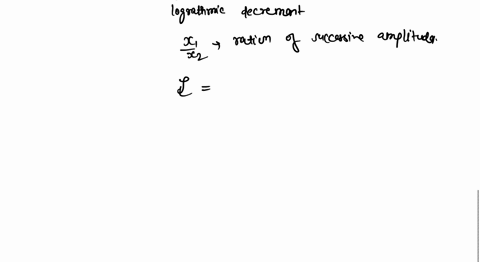 lograthmic decrement
x₁/x₂ → ration of successive amplitude.
ξ =